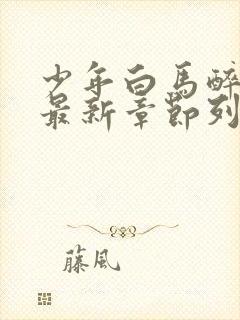 少年白马醉
最新章节列
藤風